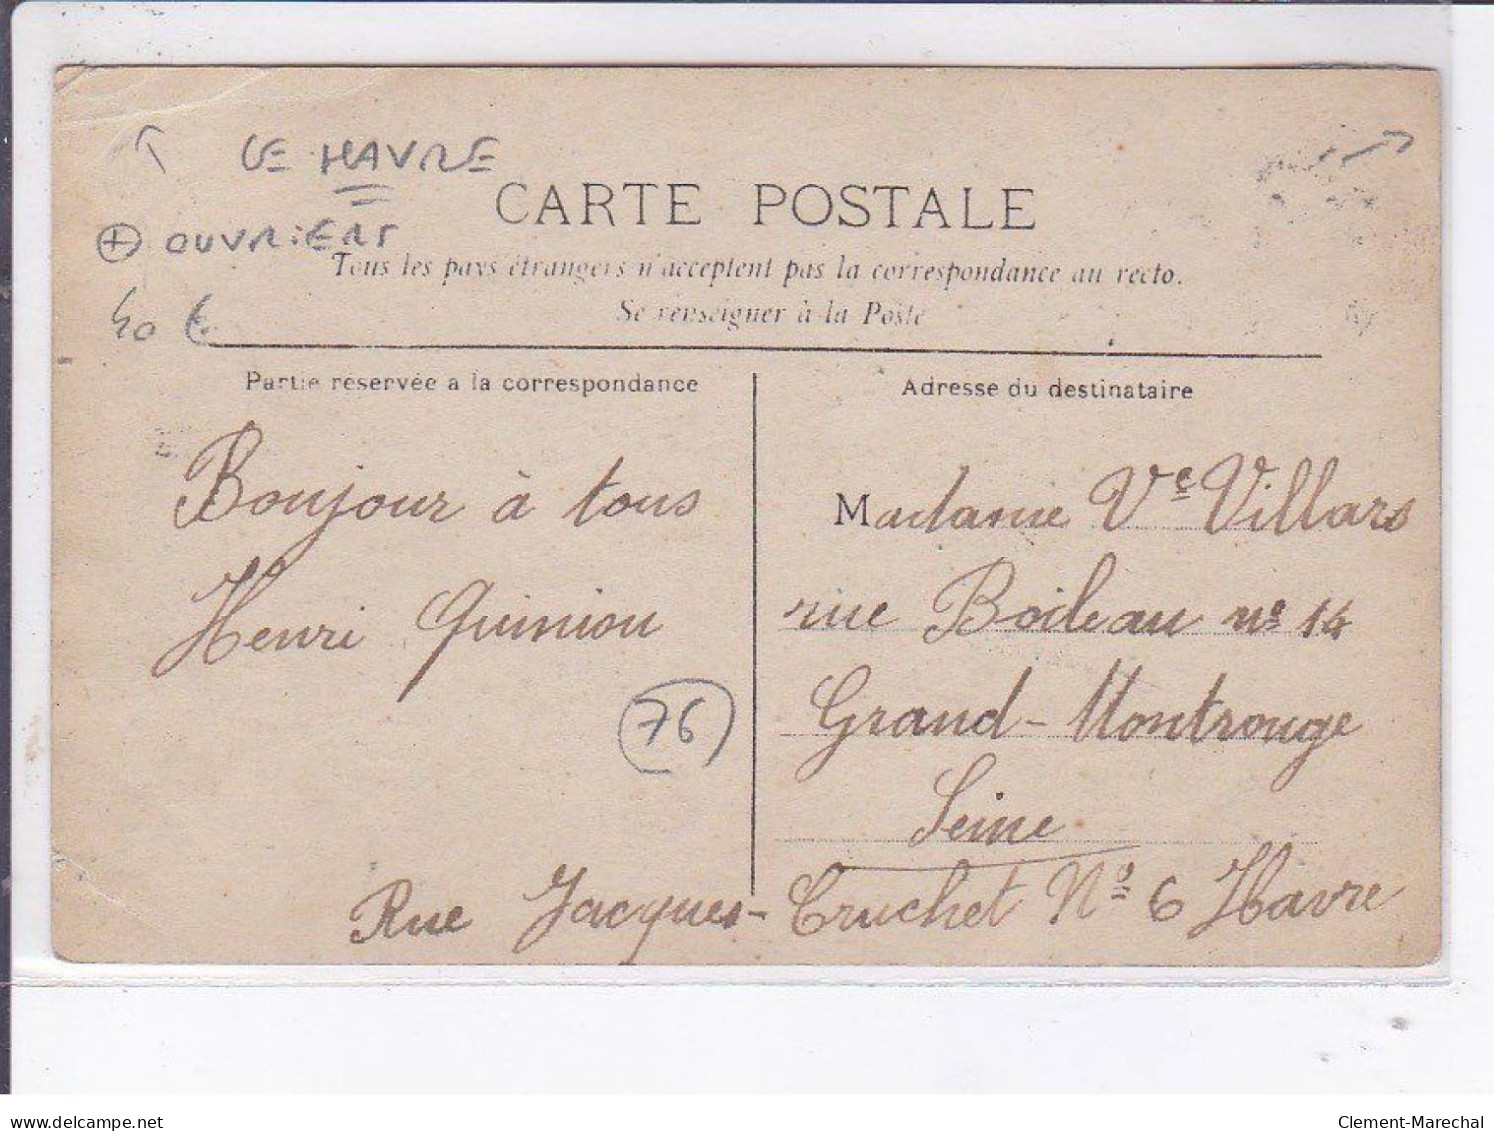 LE HAVRE
CARTE POSTALE
⊕ OUVRIERS
Tous les pays étrangers n'acceptent pas la correspondance au recto.
Se renseigner à la Poste
40 €
Partie réservée a la correspondance
Adresse du destinataire
Bonjour à tous
Henri Quiniou
76
Madame Vᵉ Villars
rue Boileau nº 14
Grand-Montrouge
Seine
Rue Jacques-Cruchet Nº 6 Havre
delcampe.net
Clement-Marechal